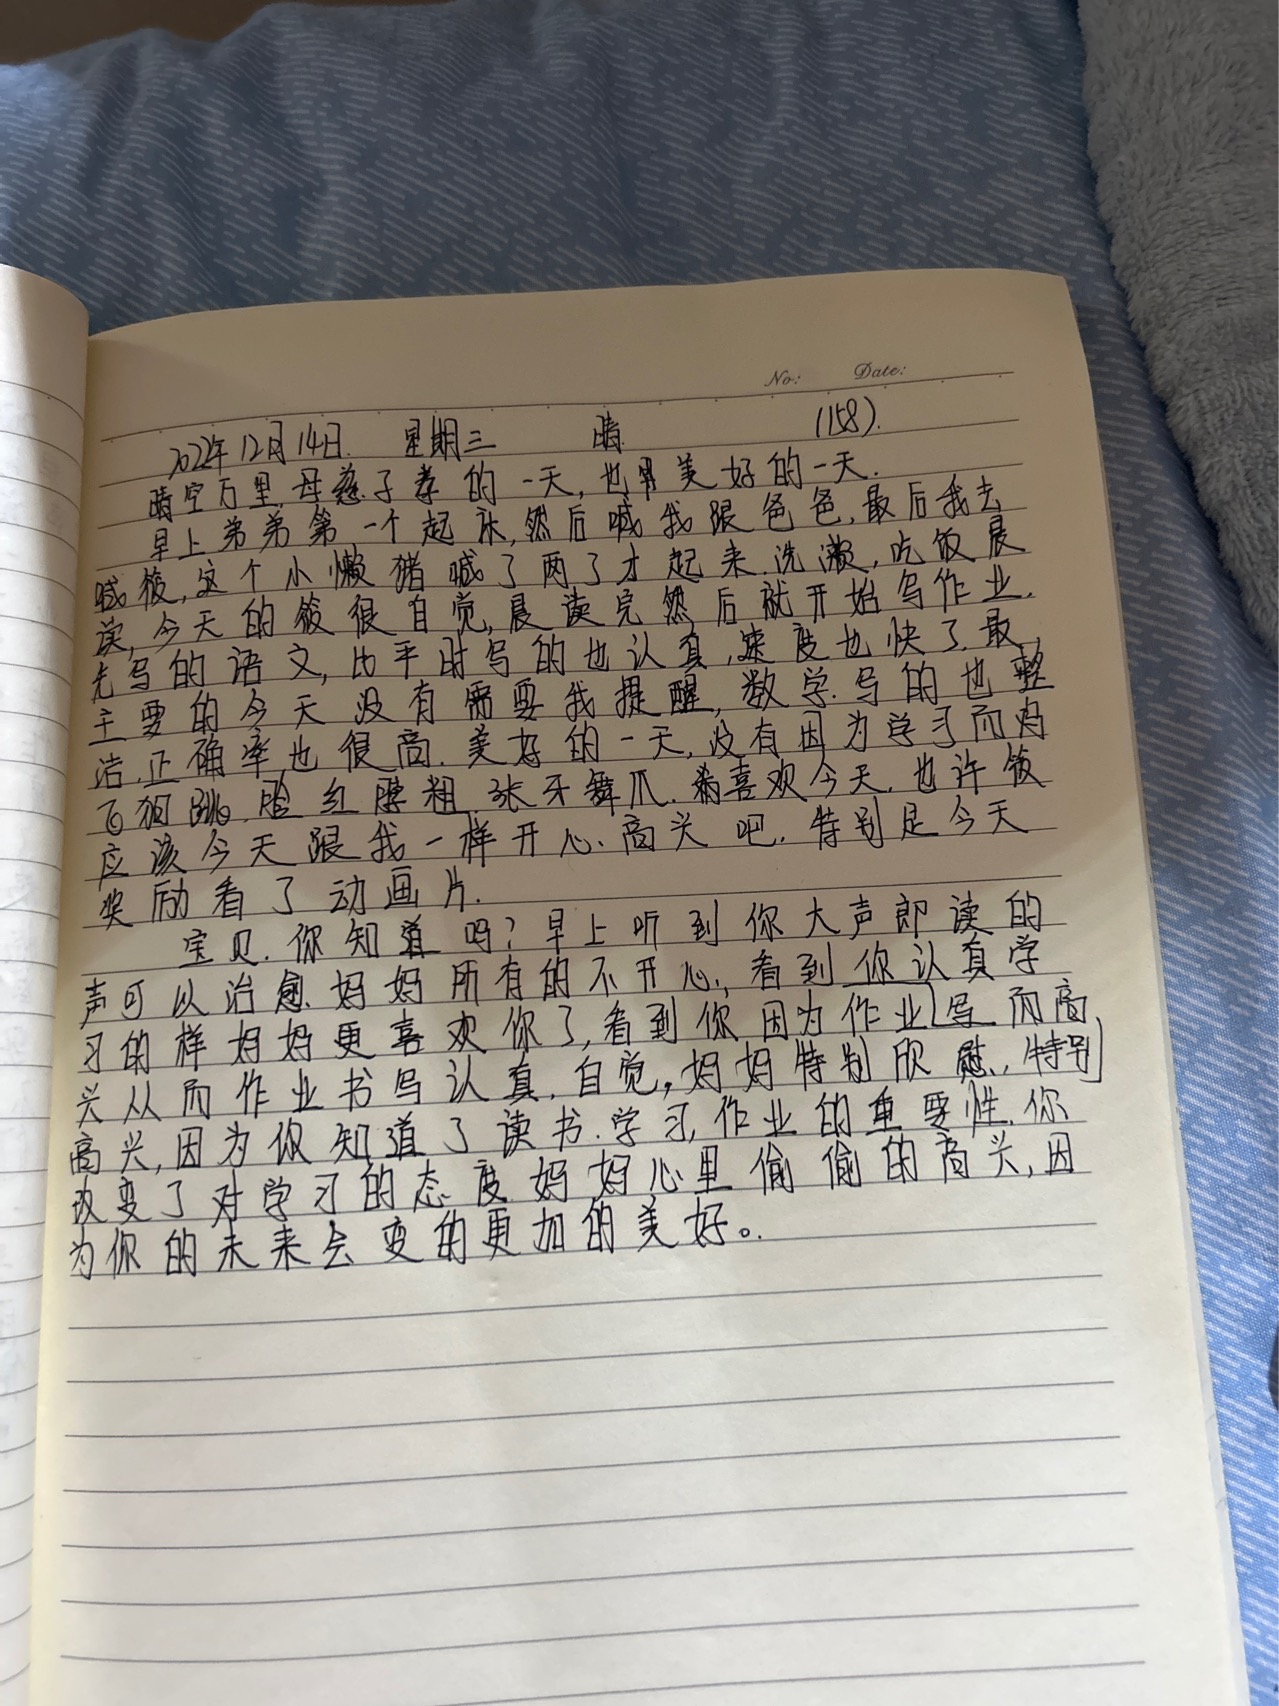 No: Date:
2022年12月14日. 星期三 晴. (158).
晴空万里.母慈子孝的一天,也美好的一天.
早上弟弟第一个起床,然后喊我跟爸爸,最后我去
喊筱,这个小懒猪喊了两了才起来.洗漱,吃饭晨
读,今天的筱很自觉,晨读完然后就开始写作业.
先写的语文,比平时写的也认真,速度也快了.最
主要的今天没有需要我提醒,数学.写的也整
洁.正确率也很高.美好的一天,没有因为学习而鸡
飞狗跳.脸红脖粗.张牙舞爪.喜欢今天.也许筱
应该今天跟我一样开心.高兴吧.特别是今天
奖励看了动画片.
宝贝.你知道吗?早上听到你大声郎读的
声可以治愈.妈妈所有的不开心,看到你认真学
习的样妈妈更喜欢你了,看到你因为作业写而高
兴从而作业书写认真.自觉,妈妈特别欣慰.,特别
高兴,因为你知道了读书.学习,作业的重要性.你
改变了对学习的态度妈妈心里偷偷的高兴,因
为你的未来会变的更加的美好。.